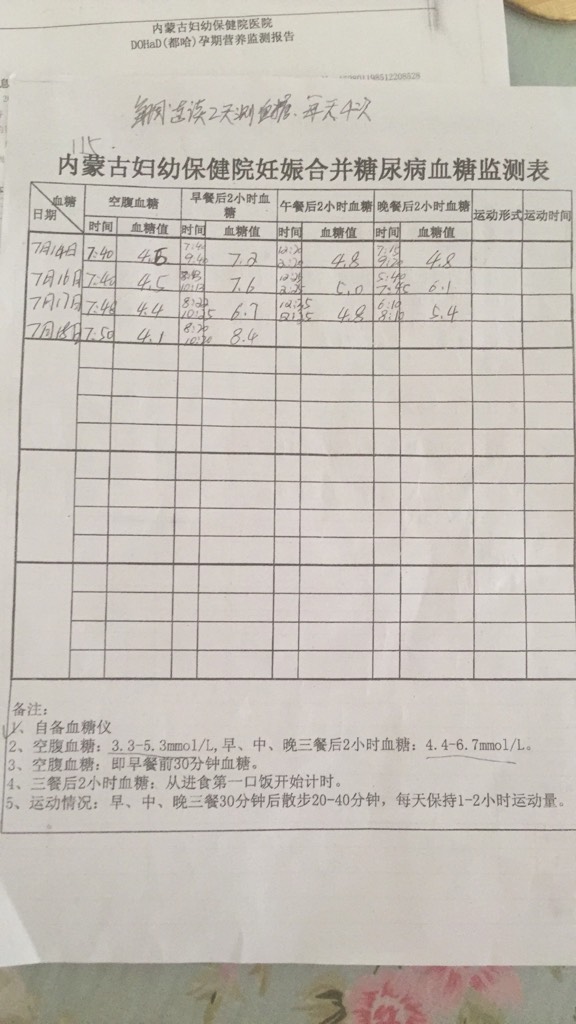 内蒙古妇幼保健院医院
DOHaD(都哈)孕期营养监测报告
息
每周连续2天测血糖、每天4次
115.
内蒙古妇幼保健院妊娠合并糖尿病血糖监测表
血糖 日期 空腹血糖 早餐后2小时血糖 午餐后2小时血糖 晚餐后2小时血糖 运动形式 运动时间
时间 血糖值 时间 血糖值 时间 血糖值 时间 血糖值
7月14日 7:40 4.5 7:40 9:40 7.2 12:20 2:20 4.8 7:15 9:20 4.8
7月16日 7:40 4.5 10:13 7.6 12:25 2:25 5.0 5:40 7:45 6.1
7月17日 7:48 4.4 8:22 10:25 6.7 12:35 4.8 6:10 8:10 5.4
7月18日 7:50 4.1 8:20 10:20 8.4
备注:
1、自备血糖仪
2、空腹血糖: 3.3-5.3mmol/L,早、中、晚三餐后2小时血糖: 4.4-6.7mmol/L。
3、空腹血糖: 即早餐前30分钟血糖。
4、三餐后2小时血糖: 从进食第一口饭开始计时。
5、运动情况: 早、中、晚三餐30分钟后散步20-40分钟，每天保持1-2小时运动量。